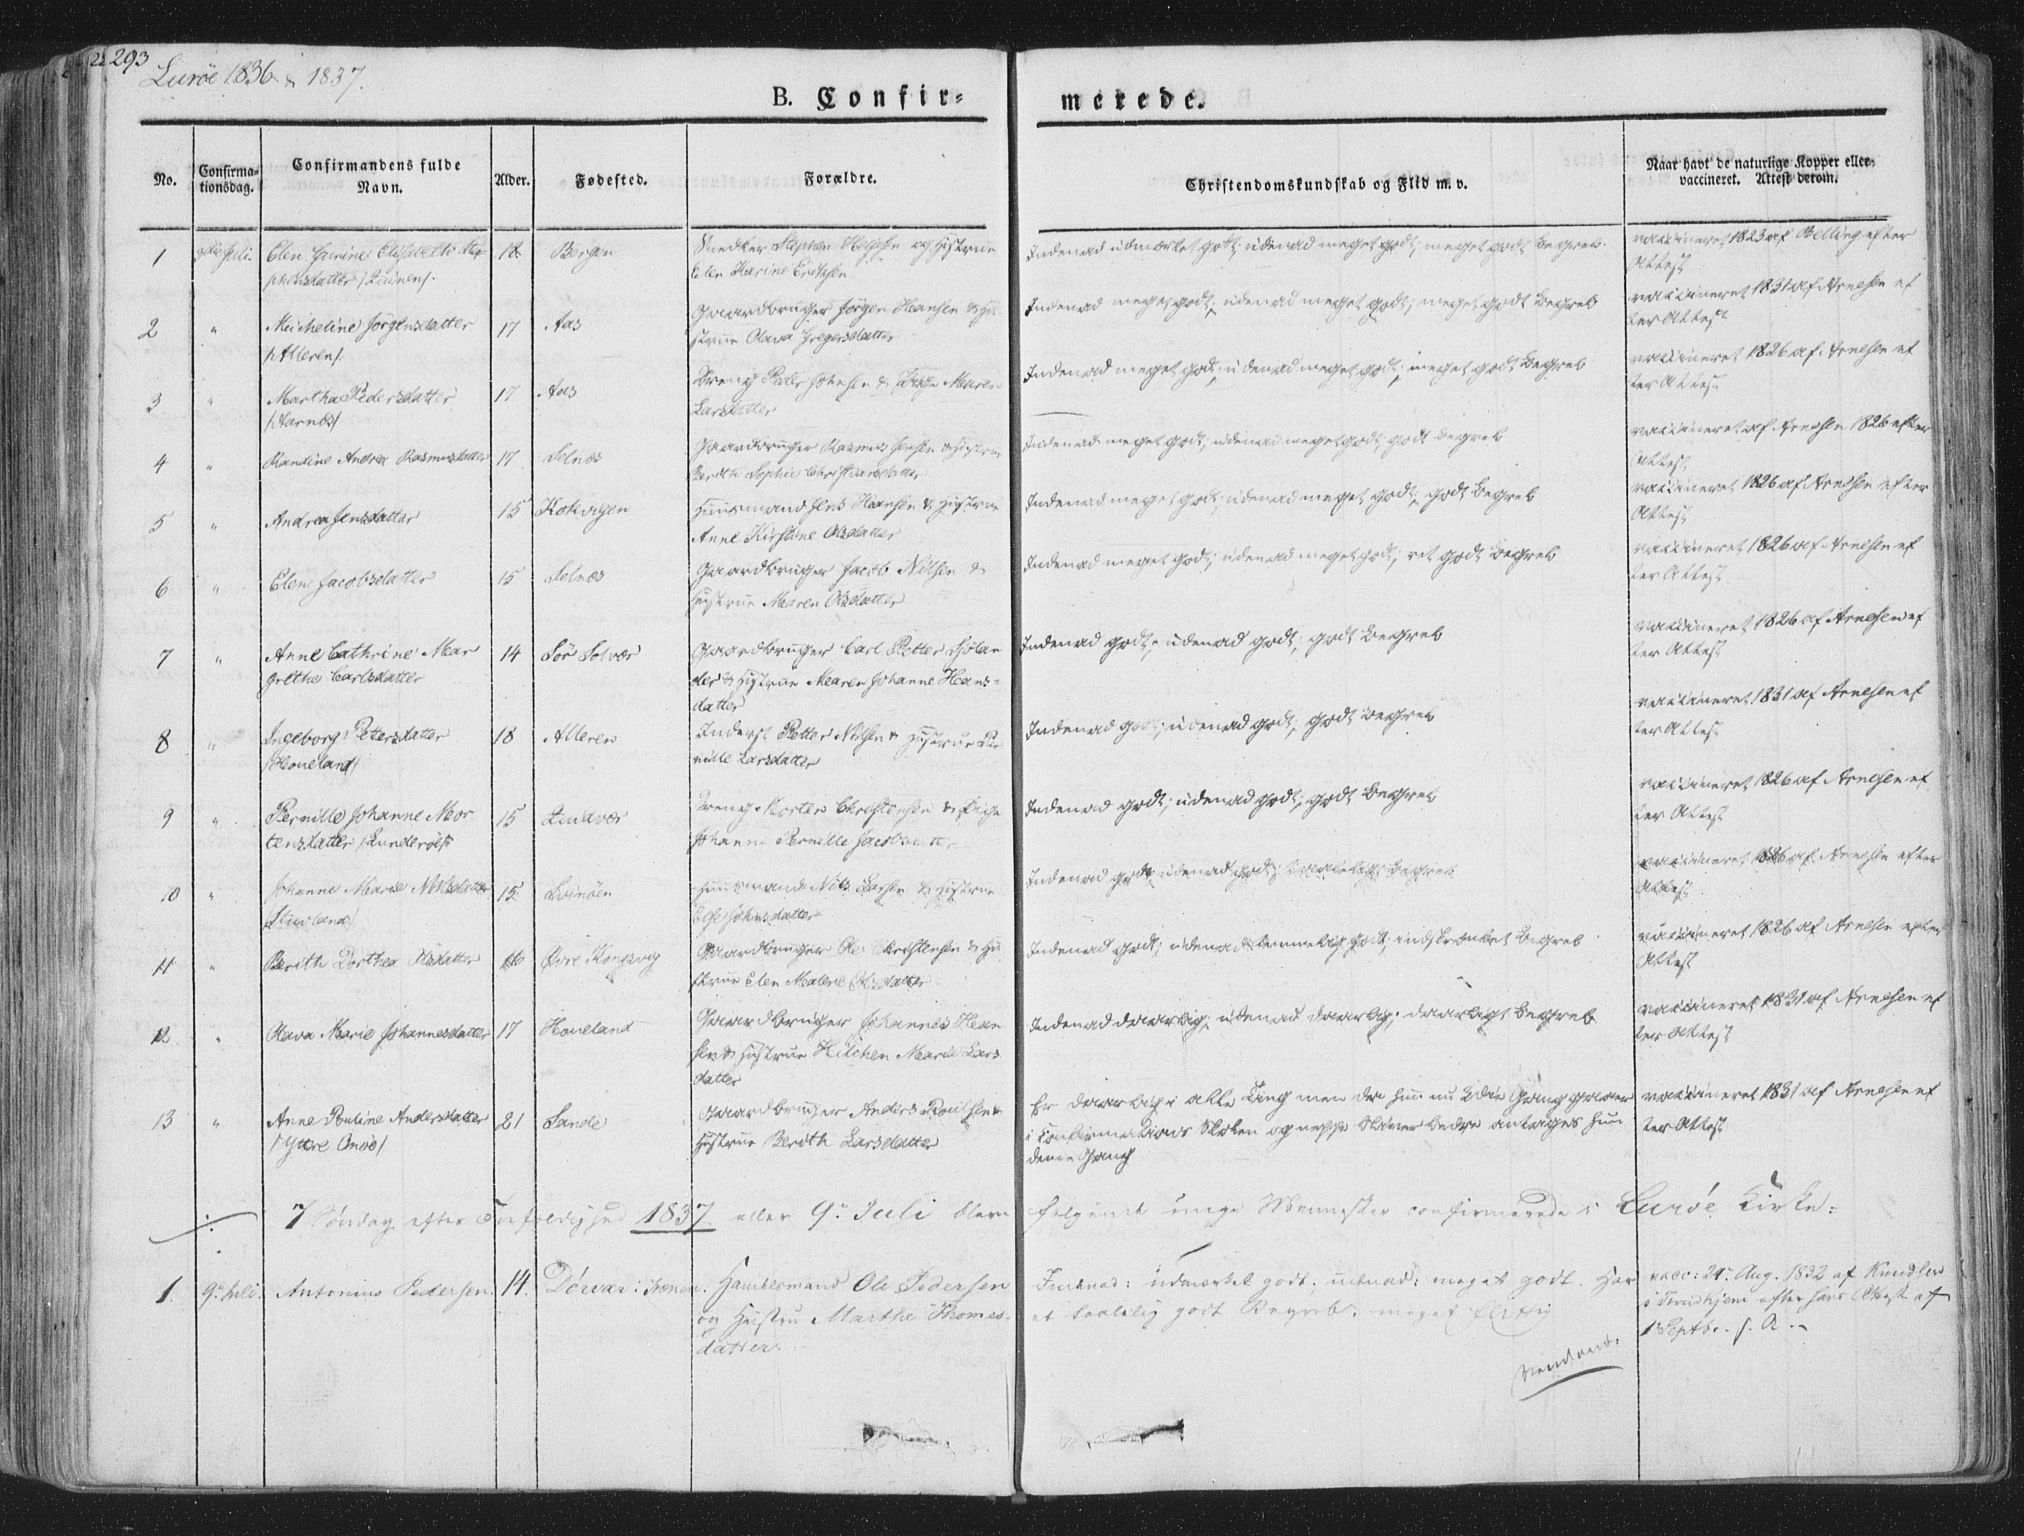 293
Lurøe 1836 & 1837.
B. Confir-
merede.
No.
Confirma-
tionsdag.
Confirmandens fulde
Navn.
Alder.
Fødested.
Forældre.
Christendomskundskab og Flid m. v.
Naar havt de naturlige Kopper eller
vaccineret. Attest derom.
1 Juli Elen Elisabeth Ste
phensdatter 18 Bergen Snedker Stephen og Hustrue
Elen Karine
Indenad udmærket godt; udenad meget godt; meget godt Begreb.
vaccineret 1823 af Belling efter
Attest
2 " Micheline Jørgensdatter 17 Aas Gaardbruger Jørgen Hansen & Hu
/Alleren/. strue Olava Gregersdatter
Indenad meget godt; udenad meget godt; meget godt Begreb
vaccineret 1831 af Arnesen ef
ter Attest
3 " Martha Pedersdatter 17 Aas Dreng Peder Johnsen & Pige Maren
/Aarnæs/ Larsdatter
Indenad meget godt; udenad meget godt; meget godt Begreb
vaccineret 1826 af Arnesen ef
ter Attest
4 " Andrea Rasmusdatter 17 Selnæs Gaardbruger Rasmus Jensen & Hustrue
Sophie Christiansdatter
Indenad meget godt; udenad meget godt; godt Begreb
vaccineret af Arnesen 1826 efter
Attest
5 " Andrea Jensdatter 15 Kokvigen Huusmand Jens Hansen & Hustrue
Anne Kirstine Olsdatter
Indenad meget godt; udenad meget godt; godt Begreb
vaccineret 1826 af Arnesen efter
Attest
6 " Elen Jacobsdatter 15 Selnæs Gaardbruger Jacob Nilsen &
Hustrue Maren Olsdatter
Indenad meget godt; udenad meget godt; ret godt Begreb
vaccineret 1826 af Arnesen ef
ter Attest
7 " Anne Cathrine Mar 14 Sør Solvær Gaardbruger Carl Petter
grethe Carlsdatter & Hustrue Maren Johanne Hans-
datter
Indenad godt; udenad godt; godt Begreb
vaccineret 1826 af Arnesen ef
ter Attest
8 " Ingeborg Petersdatter 18 Alleren Inderst Petter Nilsen & Hustrue Per
/Hoveland/ nille Larsdatter
Indenad godt; udenad godt; godt Begreb
vaccineret 1831 af Arnesen ef
ter Attest
9 " Pernille Johanne Mor 15 Dreng Morten Christensen & Pige
tensdatter /Lunderøe/ Johanne Pernille
Indenad godt; udenad godt; godt Begreb
vaccineret 1826 af Arnesen ef
ter Attest
10 " Johanne Marie Nilsdatter 15 Svinøen Huusmand Nils Larsen & Hustrue
Else Johnsdatter
Indenad godt; udenad godt; taaleligt Begreb
vaccineret 1826 af Arnesen efter
Attest
11 " Berith Dorthea Olsdatter 16 Øvre Kongsvig Gaardbruger Ole Christensen & Hu
strue Elen Malene Olsdatter
Indenad godt; udenad temmelig godt; indskrænket Begreb
vaccineret 1826 af Arnesen efter
Attest
12 " Olava Marie Johannesdatter 17 Hoveland Gaardbruger Johannes Han
sen & Hustrue Marie Lars
datter
Indenad daarlig; udenad daarlig; daarligt Begreb
vaccineret 1831 af Arnesen ef
ter Attest
13 " Anne Pauline Andersdatter 21 Sande Gaardbruger Anders &
/Yttre Onøe/ Hustrue Berith Larsdatter
Er daarlig i alle Ting men da hun nu Gang gaaer
i Confirmations Skolen og neppe bliver bedre antages hun
denne Gang
vaccineret 1831 af Arnesen ef
ter Attest
7 Søndag efter Trefoldighed 1837 eller 9de Juli bleve følgende unge Mennesker confirmerede i Lurøe Kirke:
1. 9de Juli. Antonius Pedersen. 14. Dørvær i Trænen. Ole Pedersen
og Hustru Marthe Thomes-
datter.
Indenad: udmærket godt; udenad: meget godt. Har
et taalelig godt Begreb. meget flittig
vacc: 24. Aug. 1832 af
i Trondhjem efter hans Attest af
1 Septbr. s. A.